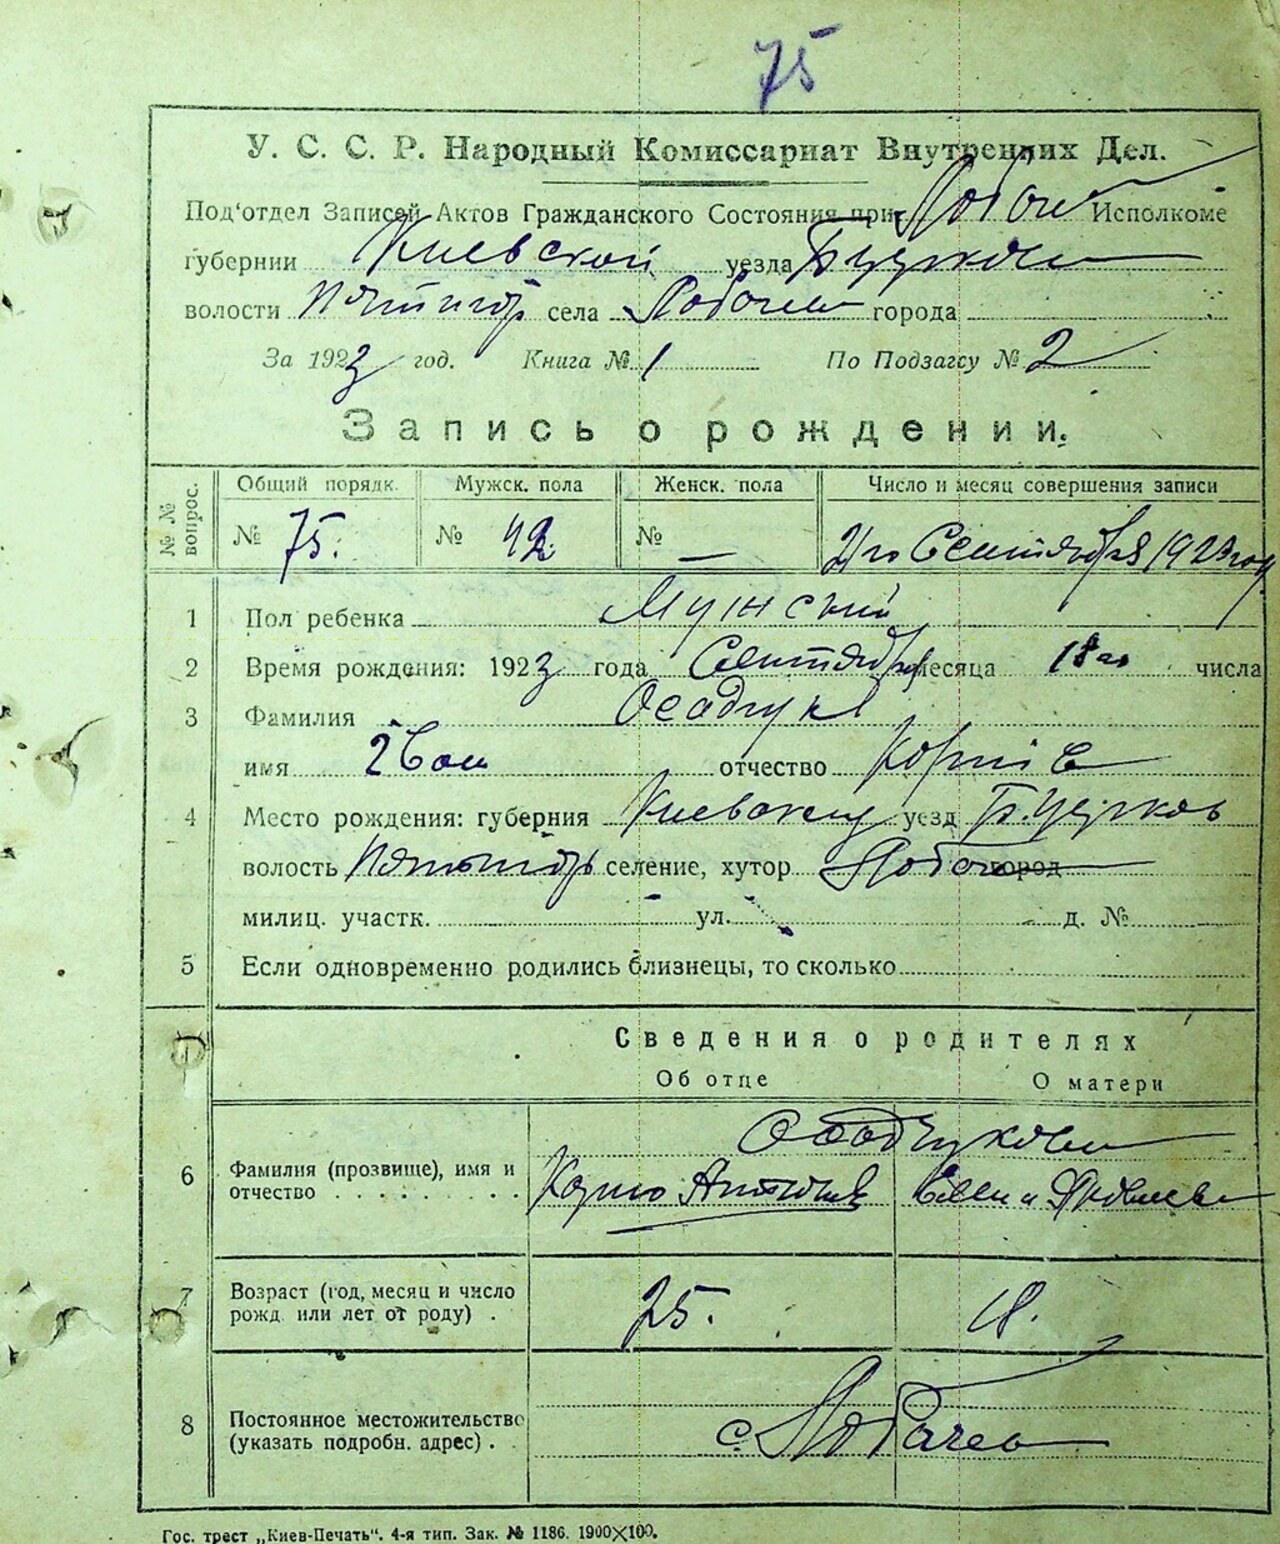 75
У. С. С. Р. Народный Комиссариат Внутренних Дел.
Под'отдел Записей Актов Гражданского Состояния при Лобач Исполкоме
губернии Киевской уезда Б Церков
волости Пятигор села Лобачев города
За 1923 год. Книга № 1 По Подзагсу № 2
Запись о рождении.
№ № вопрос.
Общий порядк. Мужск. пола Женск. пола Число и месяц совершения записи
№ 75. № 42 № — 21го Сентября 1923 год
1 Пол ребенка Мужский
2 Время рождения: 1923 года Сентября месяца 18го числа
3 Фамилия Осадчук
имя Иван отчество Корнів
4 Место рождения: губерния Киевской уезд Б. Церков
волость Пятигор селение, хутор Лобач город
милиц. участк. ул. д. №
5 Если одновременно родились близнецы, то сколько
Сведения о родителях
Об отце О матери
Осадчукови
6 Фамилия (прозвище), имя и
отчество Корно Антонів Елена Яковлева
7 Возраст (год, месяц и число
рожд. или лет от роду) . 25. 18.
8 Постоянное местожительство
(указать подробн. адрес) . с. Лобачев
Гос. трест „Киев-Печать". 4-я тип. Зак. № 1186. 1900×100.